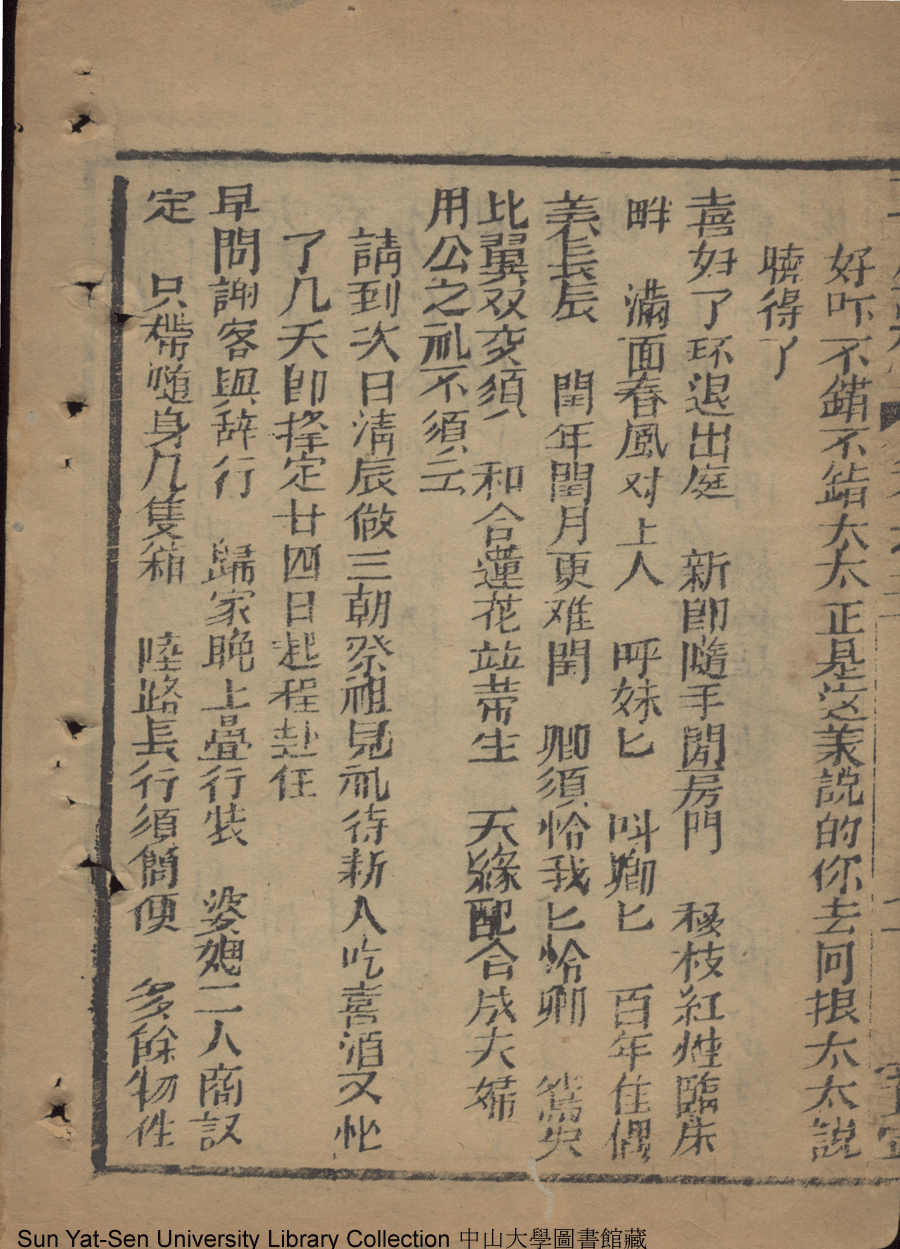 好吓不錯不錯太太正是这等說的你去回报太太說
曉得了
喜妇了环退出庭　新郎隨手閉房門　移枝紅灶臨床
畔　滿面春風对上人　呼妹匕　叫卿匕　百年佳偶
美長辰　閏年閏月更难閏　卿須怜我匕怜卿　鴛央
比翼双交頚　和合蓮花竝蒂生　天緣配合成夫婦
用公之礼不須云
請到次日清辰做三朝祭祖見礼待新人吃喜酒又忙
了几天即择定廿四日起程赴任
早問謝客與辞行　歸家晚上疊行装　婆媳二人商议
定　只帶随身几隻箱　陸路長行須簡便　多餘物件
Sun Yat-Sen University Library Collection 中山大學圖書館藏